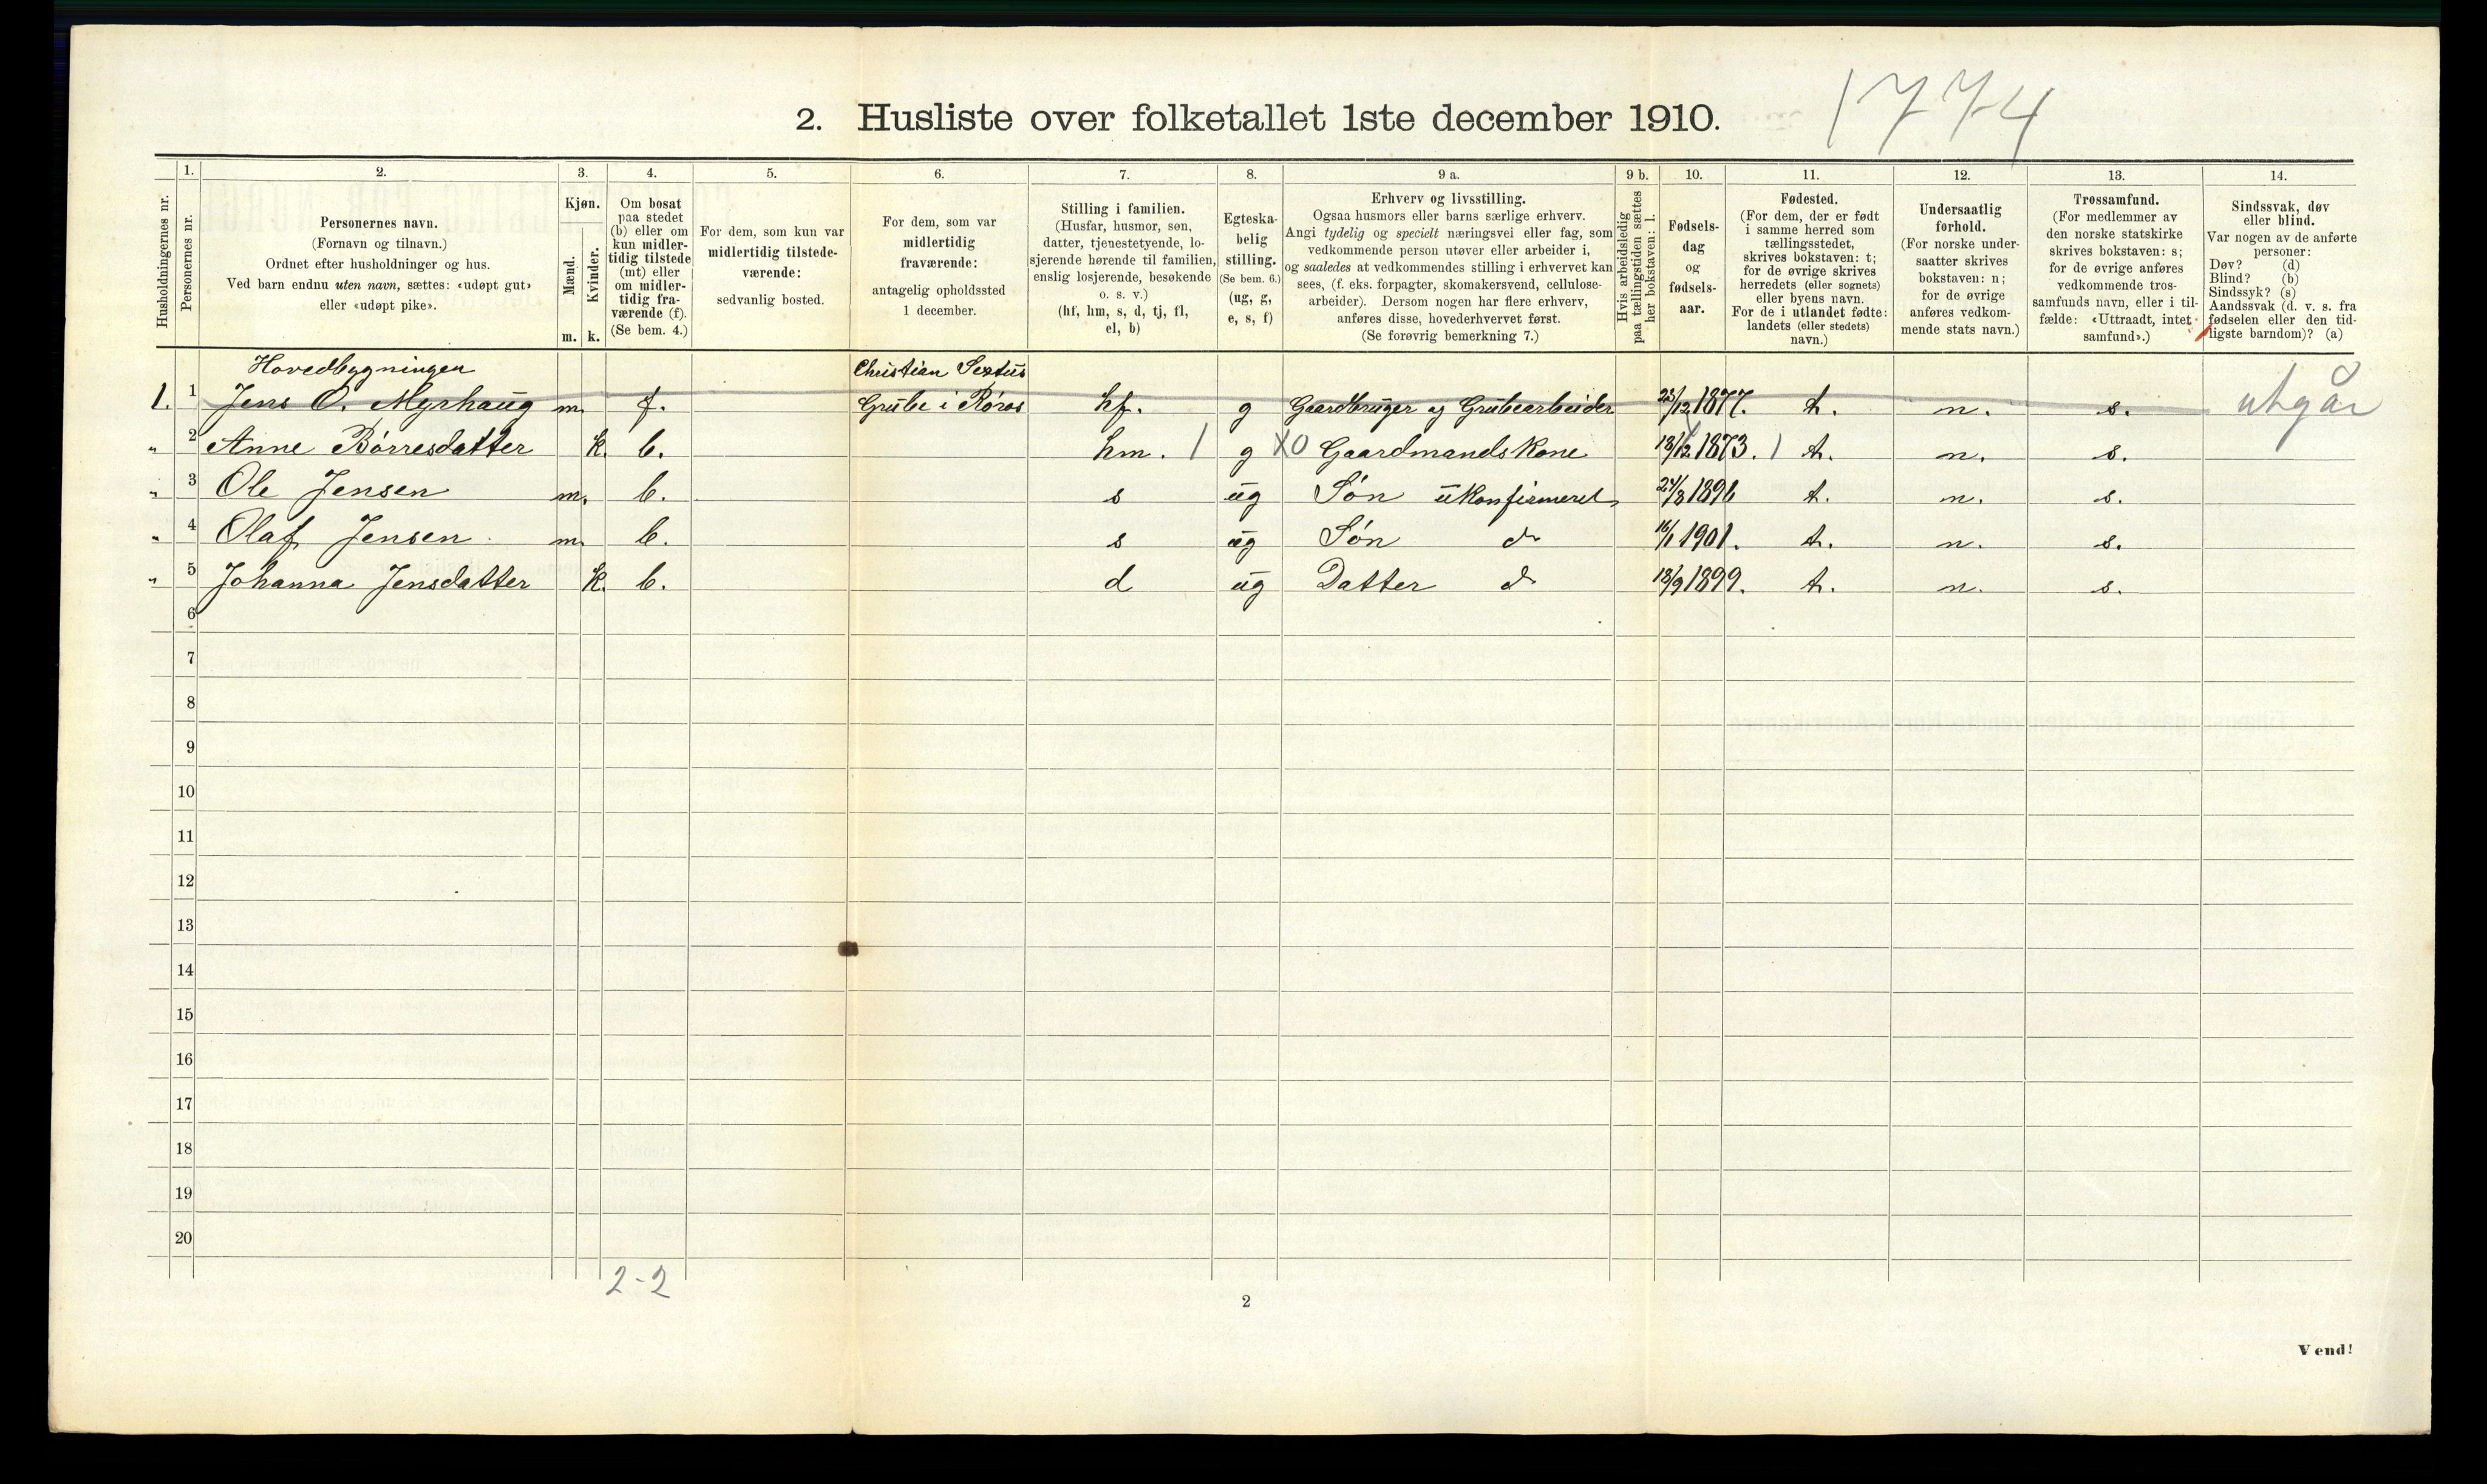 1774
2. Husliste over folketallet 1ste december 1910.
Husholdningernes nr.
1.
Personernes nr.
2.
Personernes navn.
(Fornavn og tilnavn.)
Ordnet efter husholdninger og hus.
Ved barn endnu uten navn, sættes: «udøpt gut»
eller «udøpt pike».
3.
Kjøn.
Mænd.
Kvinder.
m. k.
4.
Om bosat
paa stedet
(b) eller om
kun midler-
tidig tilstede
(mt) eller
om midler-
tidig fra-
værende (f).
(Se bem. 4.)
5.
For dem, som kun var
midlertidig tilstede-
værende:
sedvanlig bosted.
6.
For dem, som var
midlertidig
fraværende:
antagelig opholdssted
1 december.
7.
Stilling i familien.
(Husfar, husmor, søn,
datter, tjenestetyende, lo-
sjerende hørende til familien,
enslig losjerende, besøkende
o. s. v.)
(hf, hm, s, d, tj, fl,
el, b)
8.
Egteska-
belig
stilling.
(Se bem. 6.)
(ug, g,
e, s, f)
9 a.
Erhverv og livsstilling.
Ogsaa husmors eller barns særlige erhverv.
Angi tydelig og specielt næringsvei eller fag, som
vedkommende person utøver eller arbeider i,
og saaledes at vedkommendes stilling i erhvervet kan
sees, (f. eks. forpagter, skomakersvend, cellulose-
arbeider). Dersom nogen har flere erhverv,
anføres disse, hovederhvervet først.
(Se forøvrig bemerkning 7.)
9 b.
Hvis arbeidsledig
paa tællingstiden sættes
her bokstaven: l.
10.
Fødsels-
dag
og
fødsels-
aar.
11.
Fødested.
(For dem, der er født
i samme herred som
tællingsstedet,
skrives bokstaven: t;
for de øvrige skrives
herredets (eller sognets)
eller byens navn.
For de i utlandet fødte:
landets (eller stedets)
navn.)
12.
Undersaatlig
forhold.
(For norske under-
saatter skrives
bokstaven: n;
for de øvrige
anføres vedkom-
mende stats navn.)
13.
Trossamfund.
(For medlemmer av
den norske statskirke
skrives bokstaven: s;
for de øvrige anføres
vedkommende tros-
samfunds navn, eller i til-
fælde: «Uttraadt, intet
samfund».)
14.
Sindssvak, døv
eller blind.
Var nogen av de anførte
personer:
Døv? (d)
Blind? (b)
Sindssyk? (s)
Aandssvak (d. v. s. fra
fødselen eller den tid-
ligste barndom)? (a)
Hovedbygningen Christian Sextus
1. 1 Jens O. Myrhaug m. f. Grube i Røros hf. g Gaardbruger og Grubearbeider 23/12 1877. t. n. s. utgår
" 2 Anne Børresdatter k. b. hm. 1 g X0 Gaardmandskone 13/12 1873. 1 t. n. s.
" 3 Ole Jensen m. b. s ug Søn ukonfirmeret 24/8 1896 t. n. s.
" 4 Olaf Jensen m. b. s ug Søn do 16/1 1901. t. n. s.
" 5 Johanna Jensdatter k. b. d ug Datter do 13/9 1899. t. n. s.
6
7
8
9
10
11
12
13
14
15
16
17
18
19
20
2-2
2
Vend!